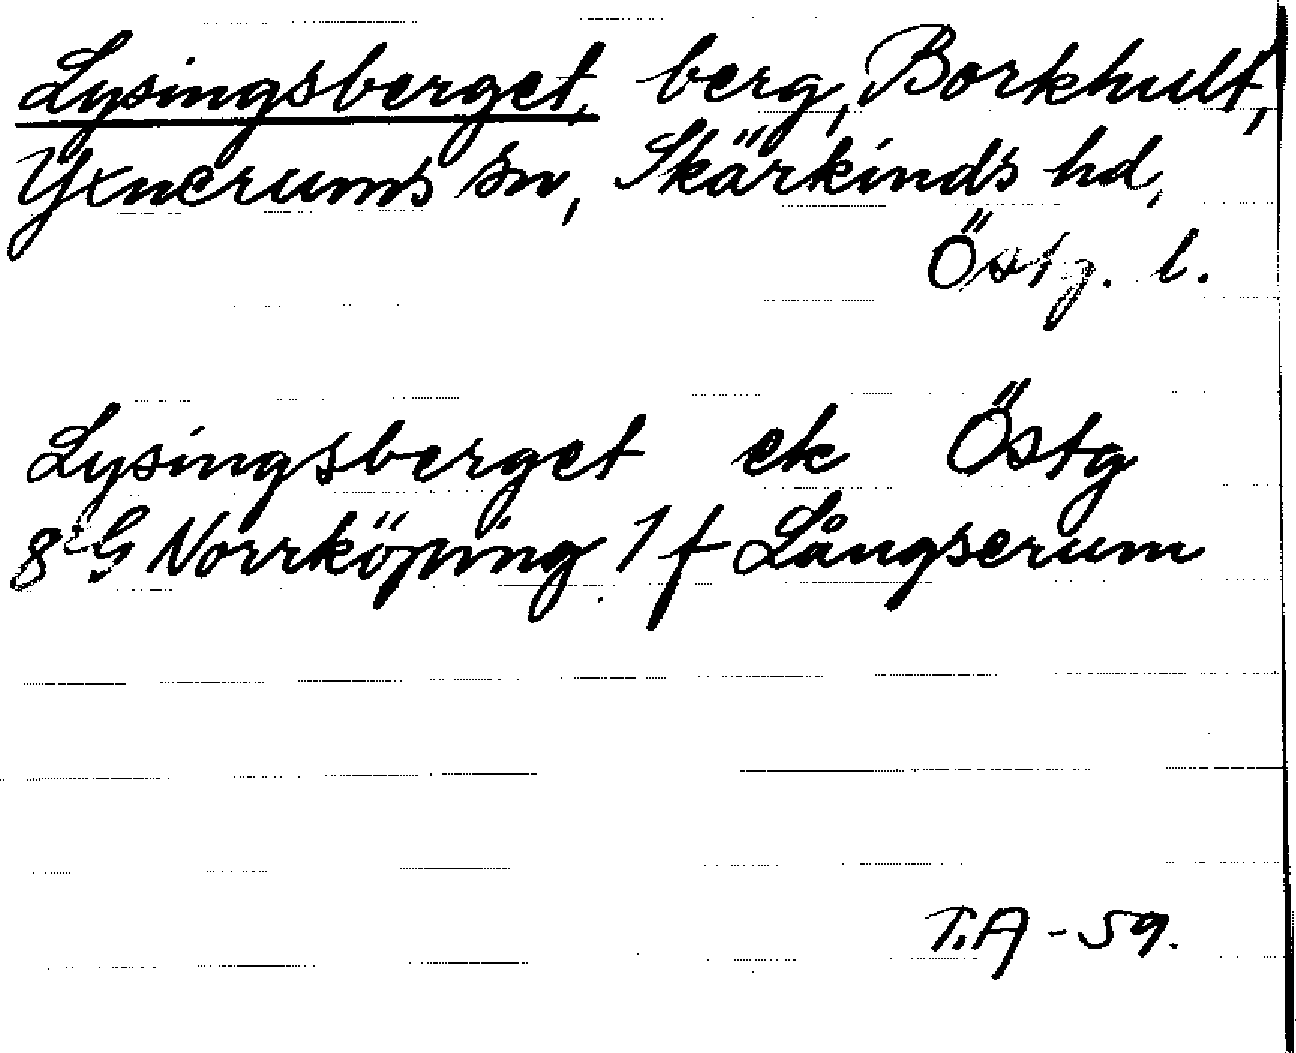 Lysingsberget, berg, Borkhult,
Yxnerums sn, Skärkinds hd,
Östg. l.
Lysingsberget ek Östg
8 G Norrköping 1 f Långserum
T.A - 59.